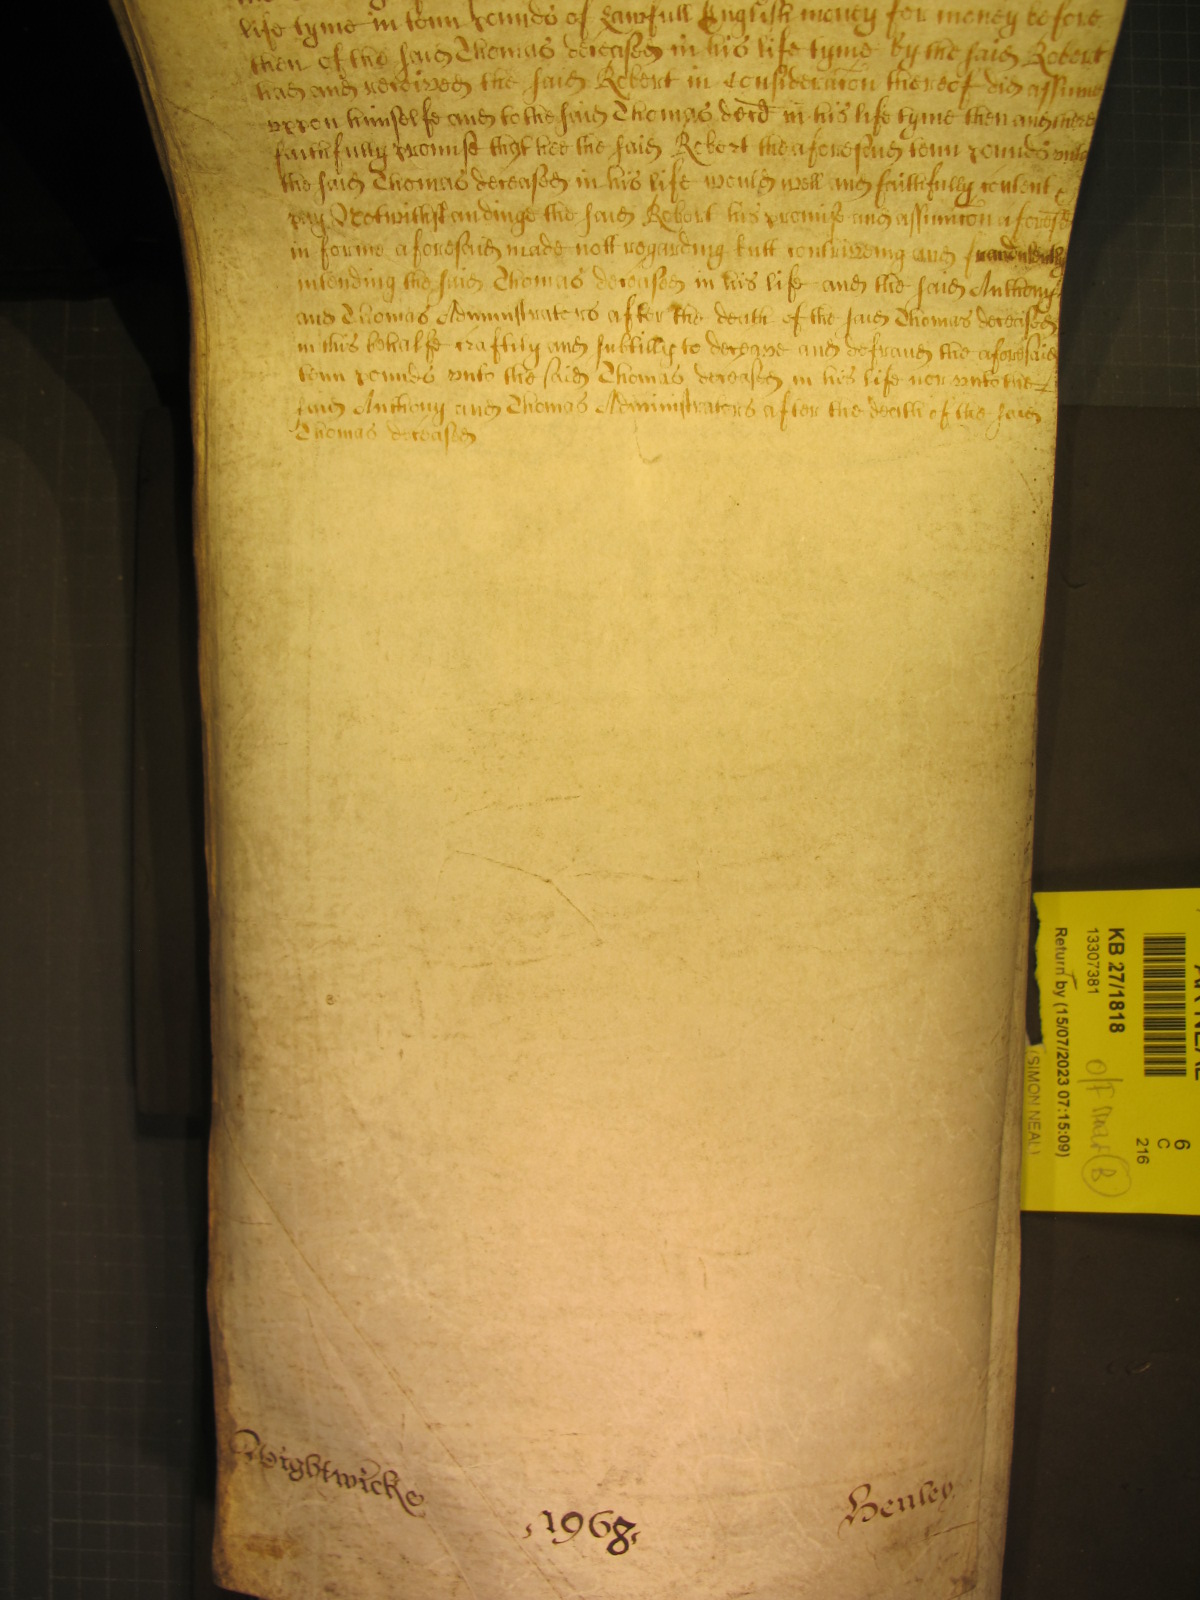 life tyme in tenn pounds of Lawfull English money for money before
then of the said Thomas deceased in his life tyme by the said Robert
had and received the said Robert in Consideracon thereof did assume
uppon himselfe and to the said Thomas decd in his life tyme then and there
faithfully promise that hee the said Robert the aforesaid tenn pounds unto
the said Thomas deceased in his life would well and faithfully content &
pay Notwithstandinge the said Robert his promise and assumcon aforesd
in forme aforesaid made nott regarding butt contriveing and fraudulently
intending the said Thomas deceased in his life and the said Anthony
and Thomas Administrators after the death of the said Thomas deceased
in this behalfe craftily and subtilly to deceave and defraud the aforesaid
tenn pounds unto the said Thomas deceased in his life nor unto the
said Anthony and Thomas Administrators after the death of the said
Thomas deceased
Wightwicke
1968
Henley
KB 27/1818
13307381
Return by (15/07/2023 07:15:09)
(SIMON NEAL)
6
C
216
B